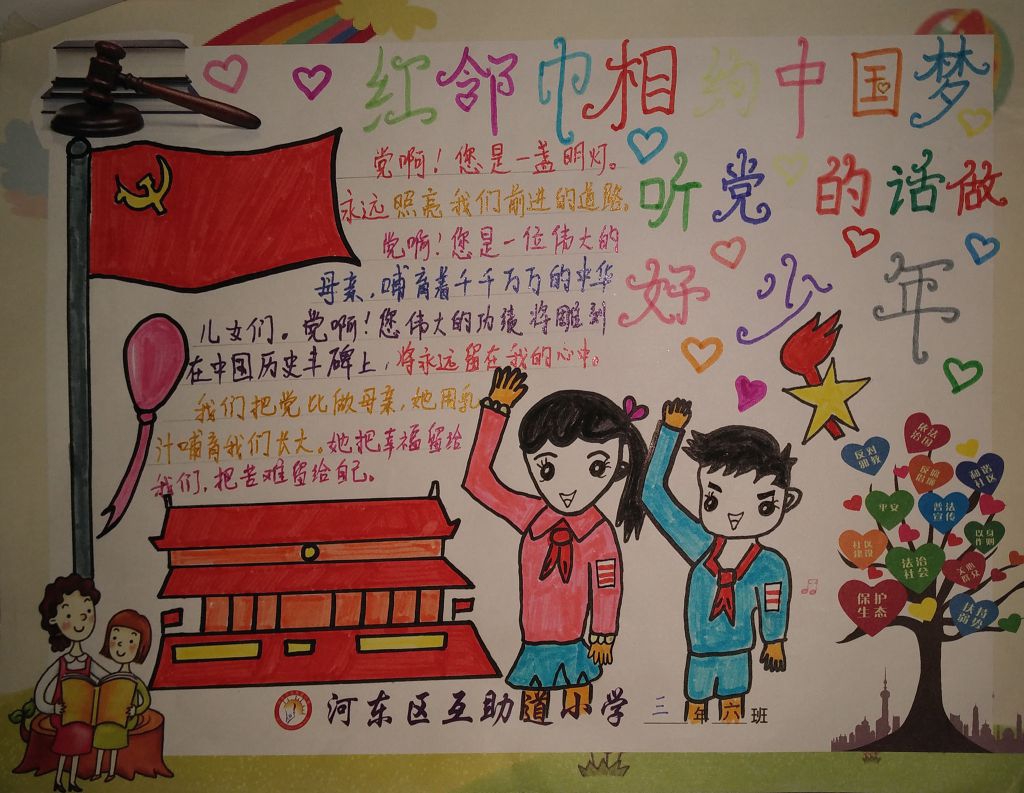 红邻巾相约中国梦
听党的话做
好少年
党啊！您是一盏明灯。
永远照亮我们前进的道路。
党啊！您是一位伟大的
母亲，哺育着千千万万的中华
儿女们。党啊！您伟大的功绩将雕刻
在中国历史丰碑上，将永远留在我的心中。
我们把党比做母亲，她用乳
汁哺育我们长大。她把幸福留给
我们，把苦难留给自己。
依法
治国
反对
邪教
反腐
倡廉
和谐
社区
平安
普法
宣传
以身
作则
社区
建设
法治
社会
关心
群众
保护
生态
扶持
弱势
河东区互助道小学 三年六班